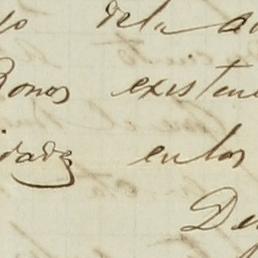 dela
Bonos existen
idades enlos
De